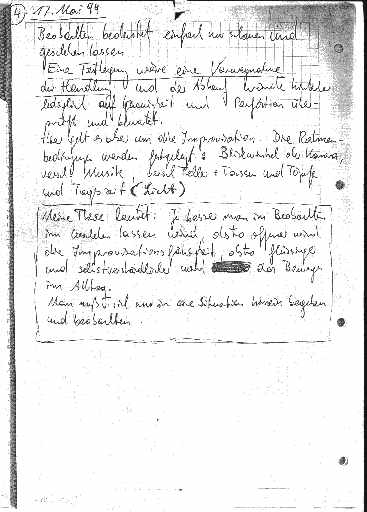 4) 17. Mai 94
Beobachten bedeutet einfach nur schauen und
geschehen lassen
Eine Festlegung wäre eine Vorwegnahme
der Handlung und der Ablauf würde
lediglich auf Genauigkeit und Perfektion über-
prüft und
Hier geht es aber um die Improvisation. Die Rahmen-
bedingungen werden festgelegt: Blickwinkel der Kamera,
Musik, Teller + Tassen und Töpfe
und Tageszeit (Licht)
Meine These lautet: Je besser man im Beobachten
im geschehen lassen wird, desto offener wird
die Improvisationsfähigkeit, desto flüssiger
und selbstverständlicher wird das Bewegen
im Alltag.
Man muß sich nur in eine Situation hinein begeben
und beobachten